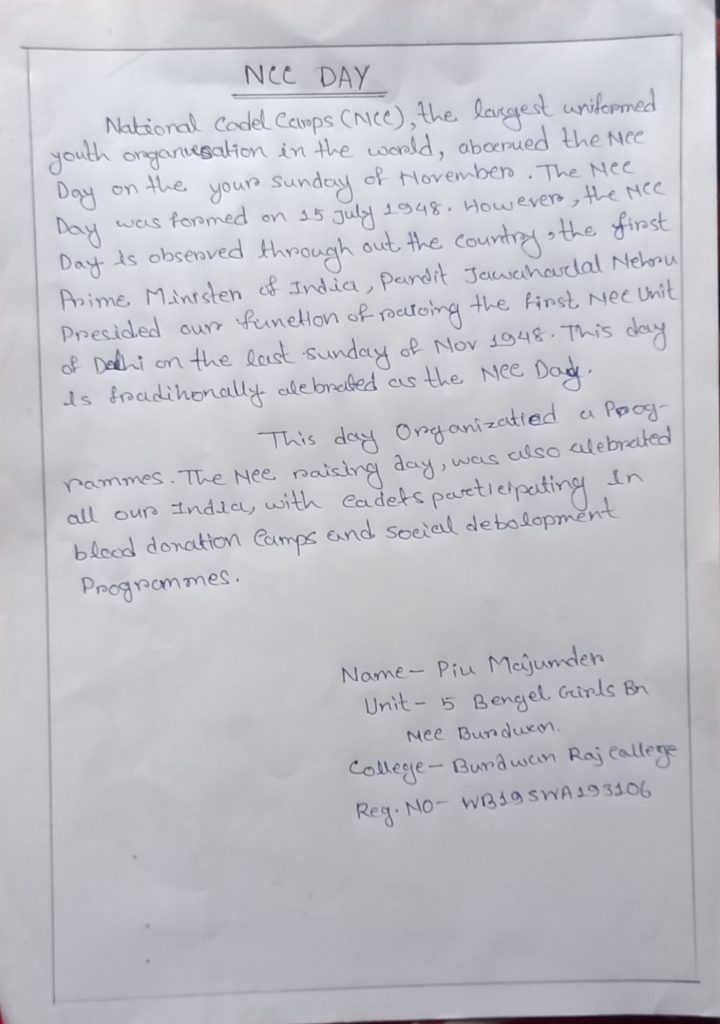 NCC DAY
National Cadel Camps (NCC), the largest uniformed
youth organisation in the world, abcerued the NCC
Day on the your sunday of November. The NCC
Day was formed on 15 July 1948. However, the NCC
Day is observed through out the country, the first
Prime Minister of India, Pandit Jawaharlal Nehru
Presided our function of raising the first NCC Unit
of Delhi on the last sunday of Nov 1948. This day
is tradihonally alebrated as the NCC Day.
This day Organizatied a Prog-
rammes. The NCC raising day, was also alebrated
all our India, with Cadets participating in
blood donation Camps and social debolopment
Programmes.
Name - Piu Majumder
Unit - 5 Bengal Girls Bn
NCC Burdwan.
College - Burdwan Raj College
Reg. NO - WB19SWA193106